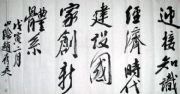 迎接知識
經濟時代
建設國
家創新
體系
戊寅二月